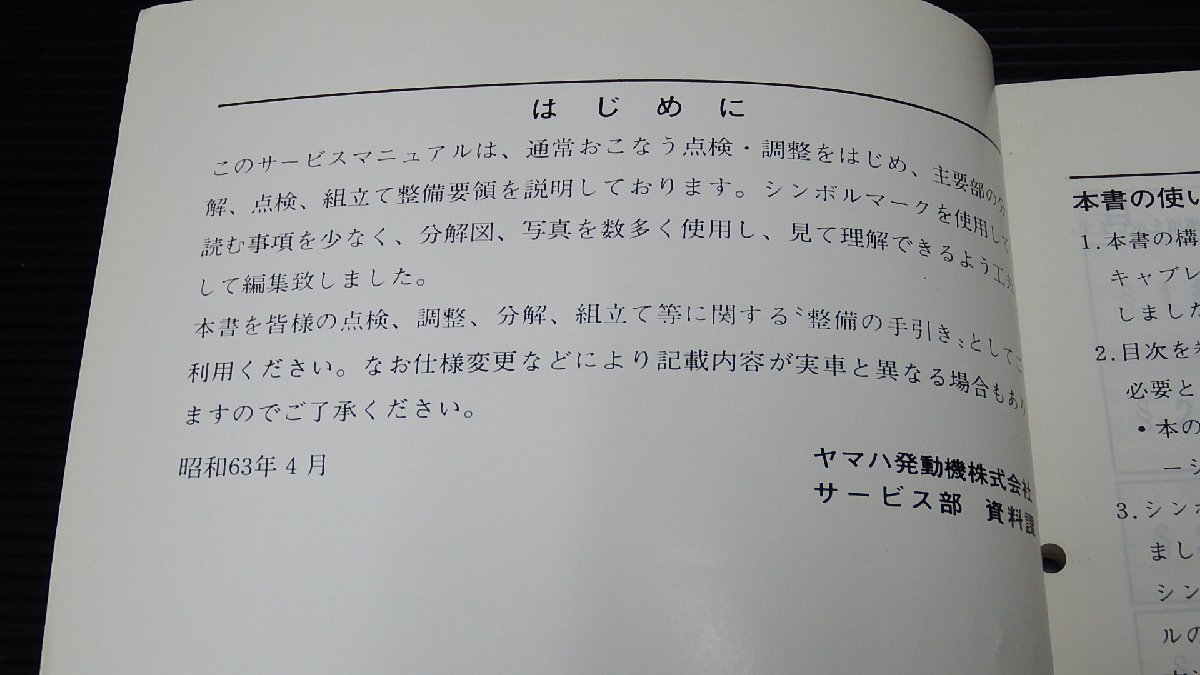 はじめに
このサービスマニュアルは、通常おこなう点検・調整をはじめ、主要部の分
解、点検、組立て整備要領を説明しております。シンボルマークを使用して
読む事項を少なく、分解図、写真を数多く使用し、見て理解できるよう工夫
して編集致しました。
本書を皆様の点検、調整、分解、組立て等に関する〝整備の手引き〟としてご
利用ください。なお仕様変更などにより記載内容が実車と異なる場合もあり
ますのでご了承ください。
昭和63年4月
ヤマハ発動機株式会社
サービス部 資料課
本書の使い
1.本書の構
キャブレ
しました
2.目次を
必要と
・本の
ーシ
3.シンボ
まし
シン
ルの